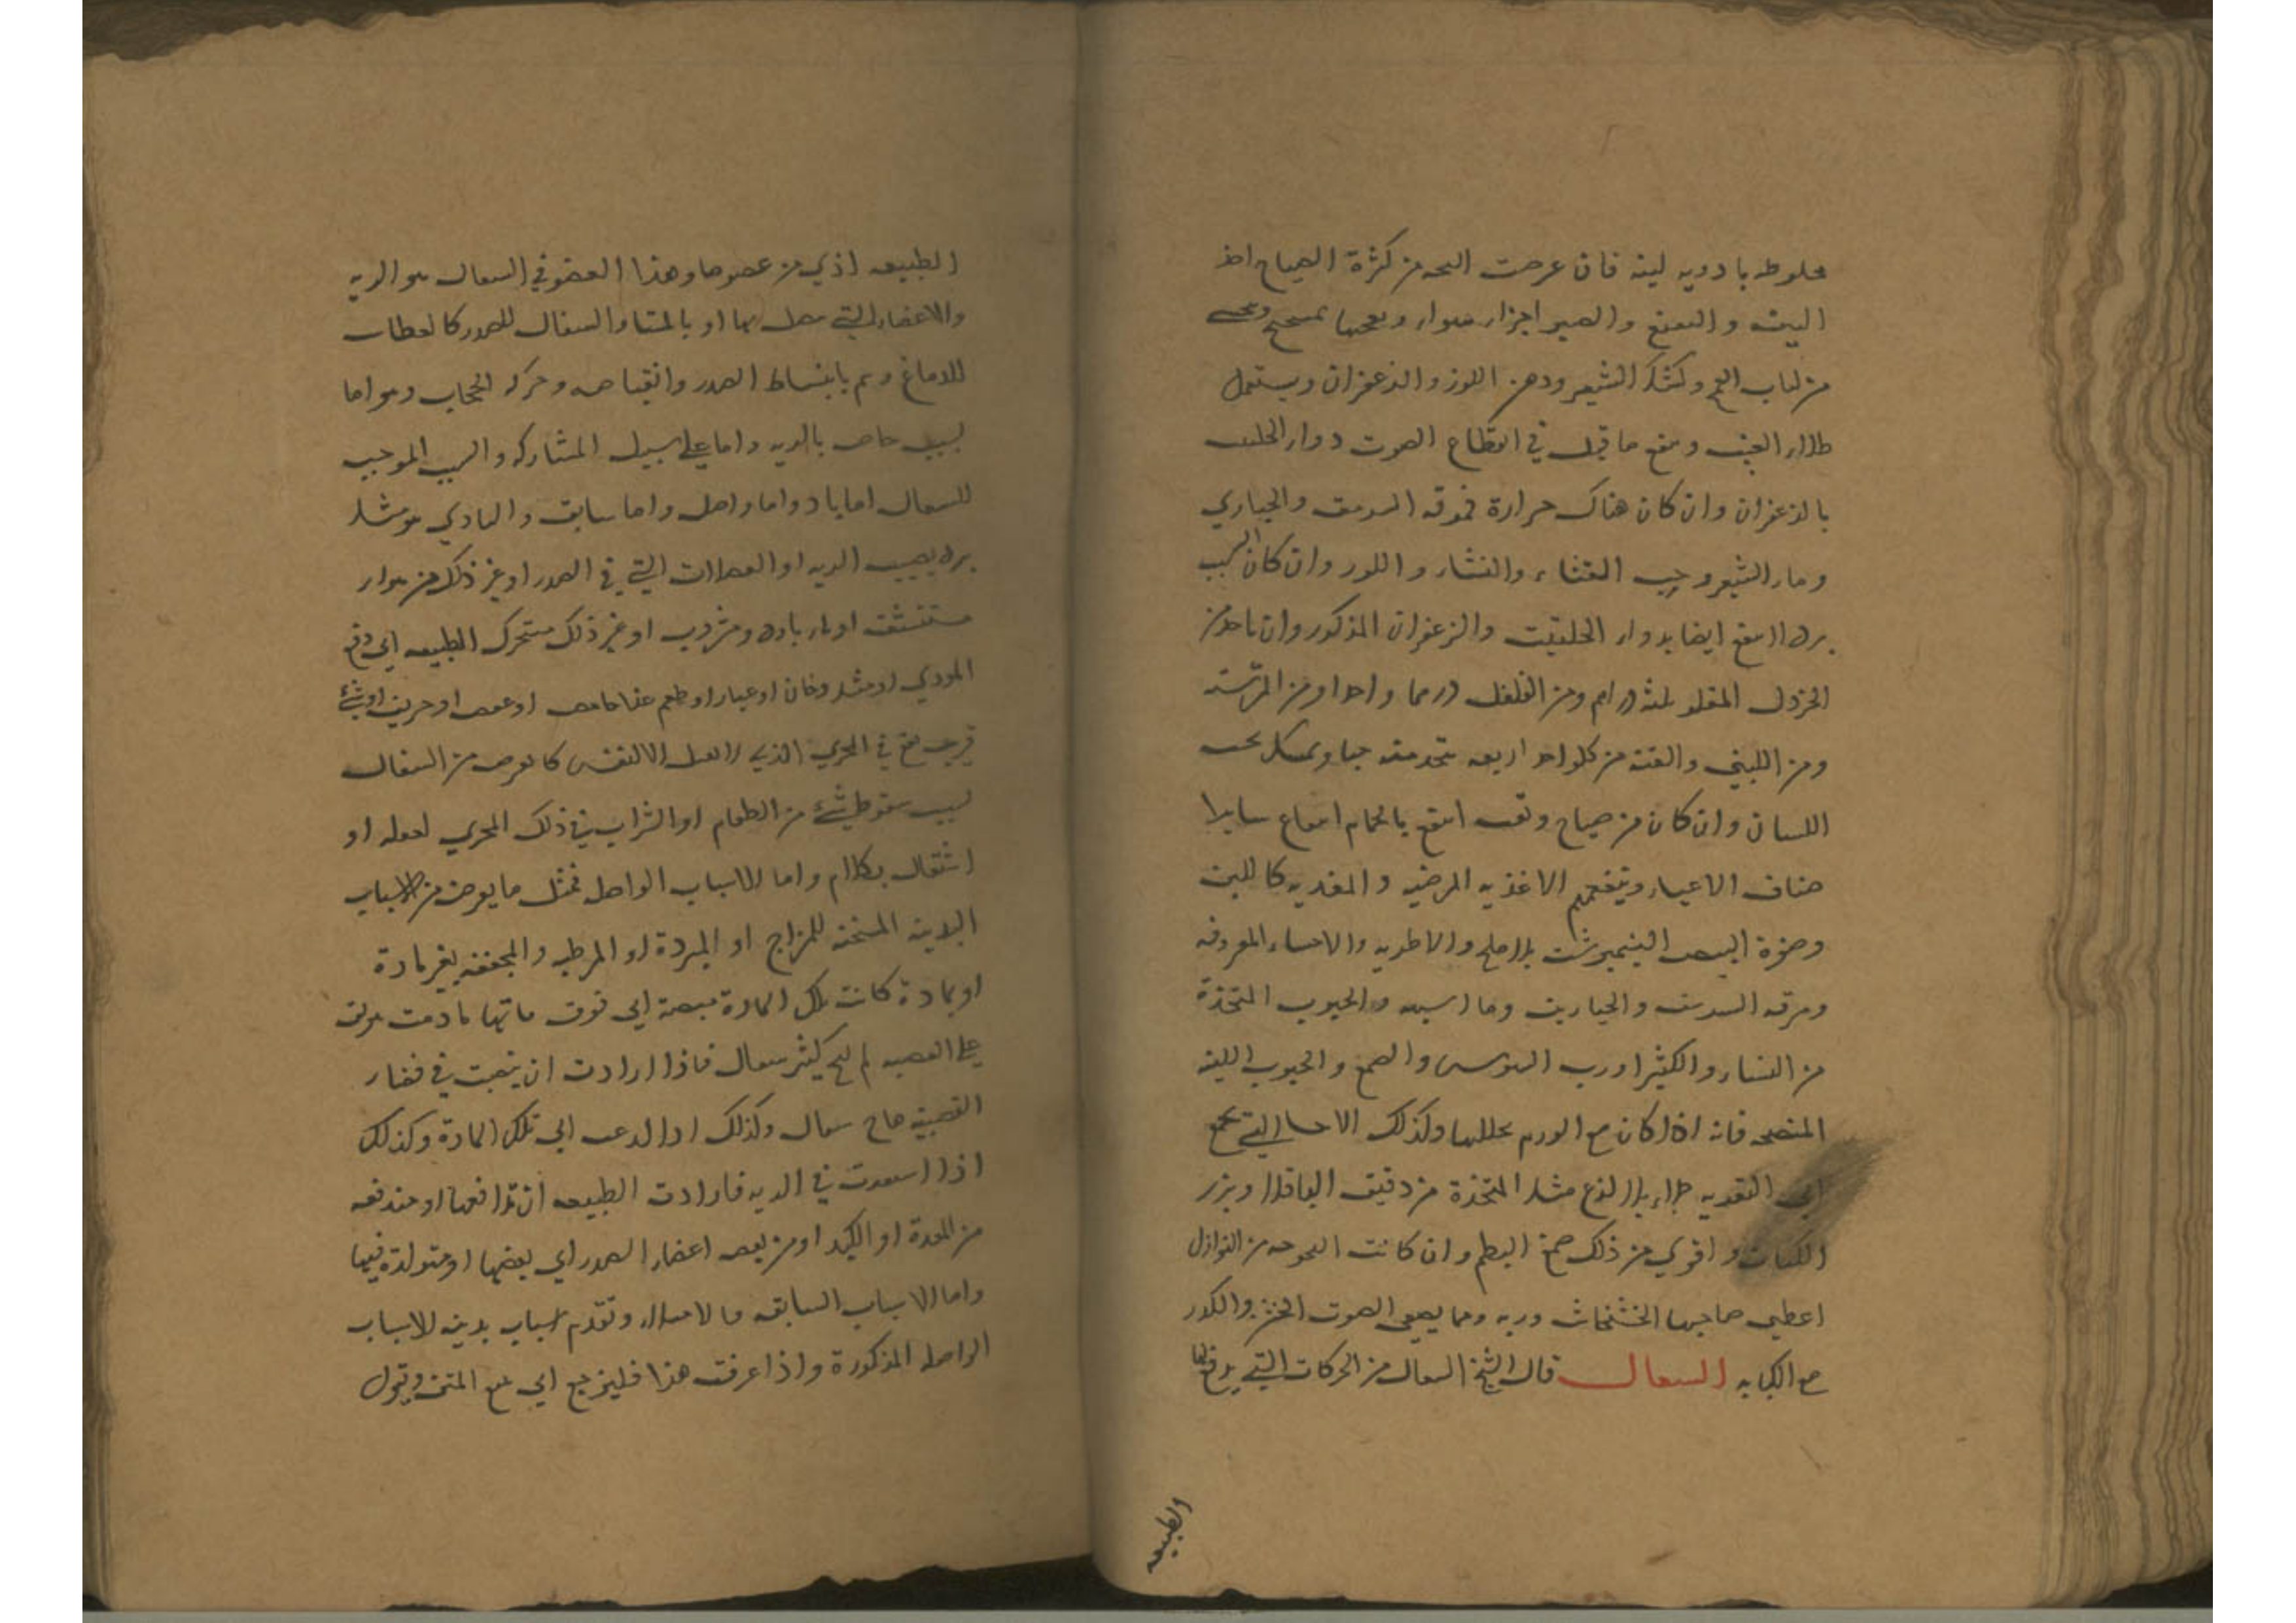 مخلوطه بادويه لينه فان عرضت البحه من كثرة الصياح اخذ
البيت و النعنع والصبر اجزاء سواء و
من لباب القمح وكشك الشعير ودهن اللوز والزعفران ويستعمل
طلاء العنب و ينفع ما قيل في انقطاع الصوت دواء الحلتيت
بالزعفران وان كان هناك حرارة فمرقه السرمق والخبازي
وماء الشعير وحب القثاء والنشاء و اللوز وان كان السبب
برد اانتفع ايضا بدواء الحلتيت والزعفران المذكور وان ياخذ من
الخردل المقلو ثلثه دراهم ومن الفلفل درهما واحدا ومن الكرسنه
ومن اللبني والقنه من كل واحد اربعه يتخذ منه حبا ويمسك تحت
اللسان وان كان من صياح وتعب انتفع بالحمام انتفاع سايرا
صناف الاعياء وينفعهم الاغذيه المرخيه و المغريه كاللبن
وصفرة البيض النيمبرشت بلا ملح والاطريه والاحساء المعروفه
ومرقه السرمق والخبازيت وما اشبهه والحبوب المتخذة
من النشاء والكثيرا ورب السوس والصمغ و الحبوب اللينه
المنضجه فانه اذا كان مع الورم يحللها وكذلك الاحسا التي تجمع
الي التغريه جلاء بلا لذع مثل المتخذة من دقيق الباقلا وبزر
الكتان و اقوي من ذلك صمغ البطم وان كانت البحوحه من النوازل
اعطي صاحبها الخشخاش وربه ومما يصفي الصوت الخشن والكدر
مع الكبابه السعال قال الشيخ السعال من الحركات التي يدفع بها
الطبيعه
الطبيعه اذي من عضو ما وهذا العضو في السعال هو الريه
والاعضاء التي تتصل بها او بالمشا والسعال للصدر كالعطاس
للدماغ و يتم بانبساط الصدر وانقباضه وحركه الحجاب وهو اما
لسبب خاص بالريه واما علي سبيل المشاركه والسبب الموجب
للسعال اما باد واما واصل واما سابق و البادي هو مثل
برد يصيب الريه او العضلات التي في الصدر او غير ذلك من هواء
مستنشق او ماء بارد ومشروب او غير ذلك ستحرك الطبيعه الي دفع
الموذي او مثل دخان او غبار او طعم غذا حامض او عفص او حريف او شئ
قريب يقع في المجري الذي لا يقبل الا النفس كما يعرض من السعال
لسبب سقوط شئ من الطعام او الشراب في ذلك المجري لغفله او
اشتغال بكلام واما الاسباب الواصل فمثل ما يعرض من الاسباب
البدنيه المسخنه للمزاج او المبردة او المرطب والمجففه بغير مادة
او بمادة كانت تلك المادة منصبة الي فوق ماتها مادمت مزلق
علي القصبه لم كثير سعال فاذا ارادت ان ينصب في فضاء
القصبة هاج سعال وكذلك اذا الي تلك المادة وكذلك
اذا استقرت في الريه فارادت الطبيعه ان تدافعها او مندفعه
من المعدة او الكبد او من بعض اعضاء الصدر الي بعضها او متولدة فيها
واما الاسباب السابقه فالامتلاء وتقدم اسباب بدنيه للاسباب
الواصله المذكورة واذا عرفت هذا فليرجع الي المتن ويقول